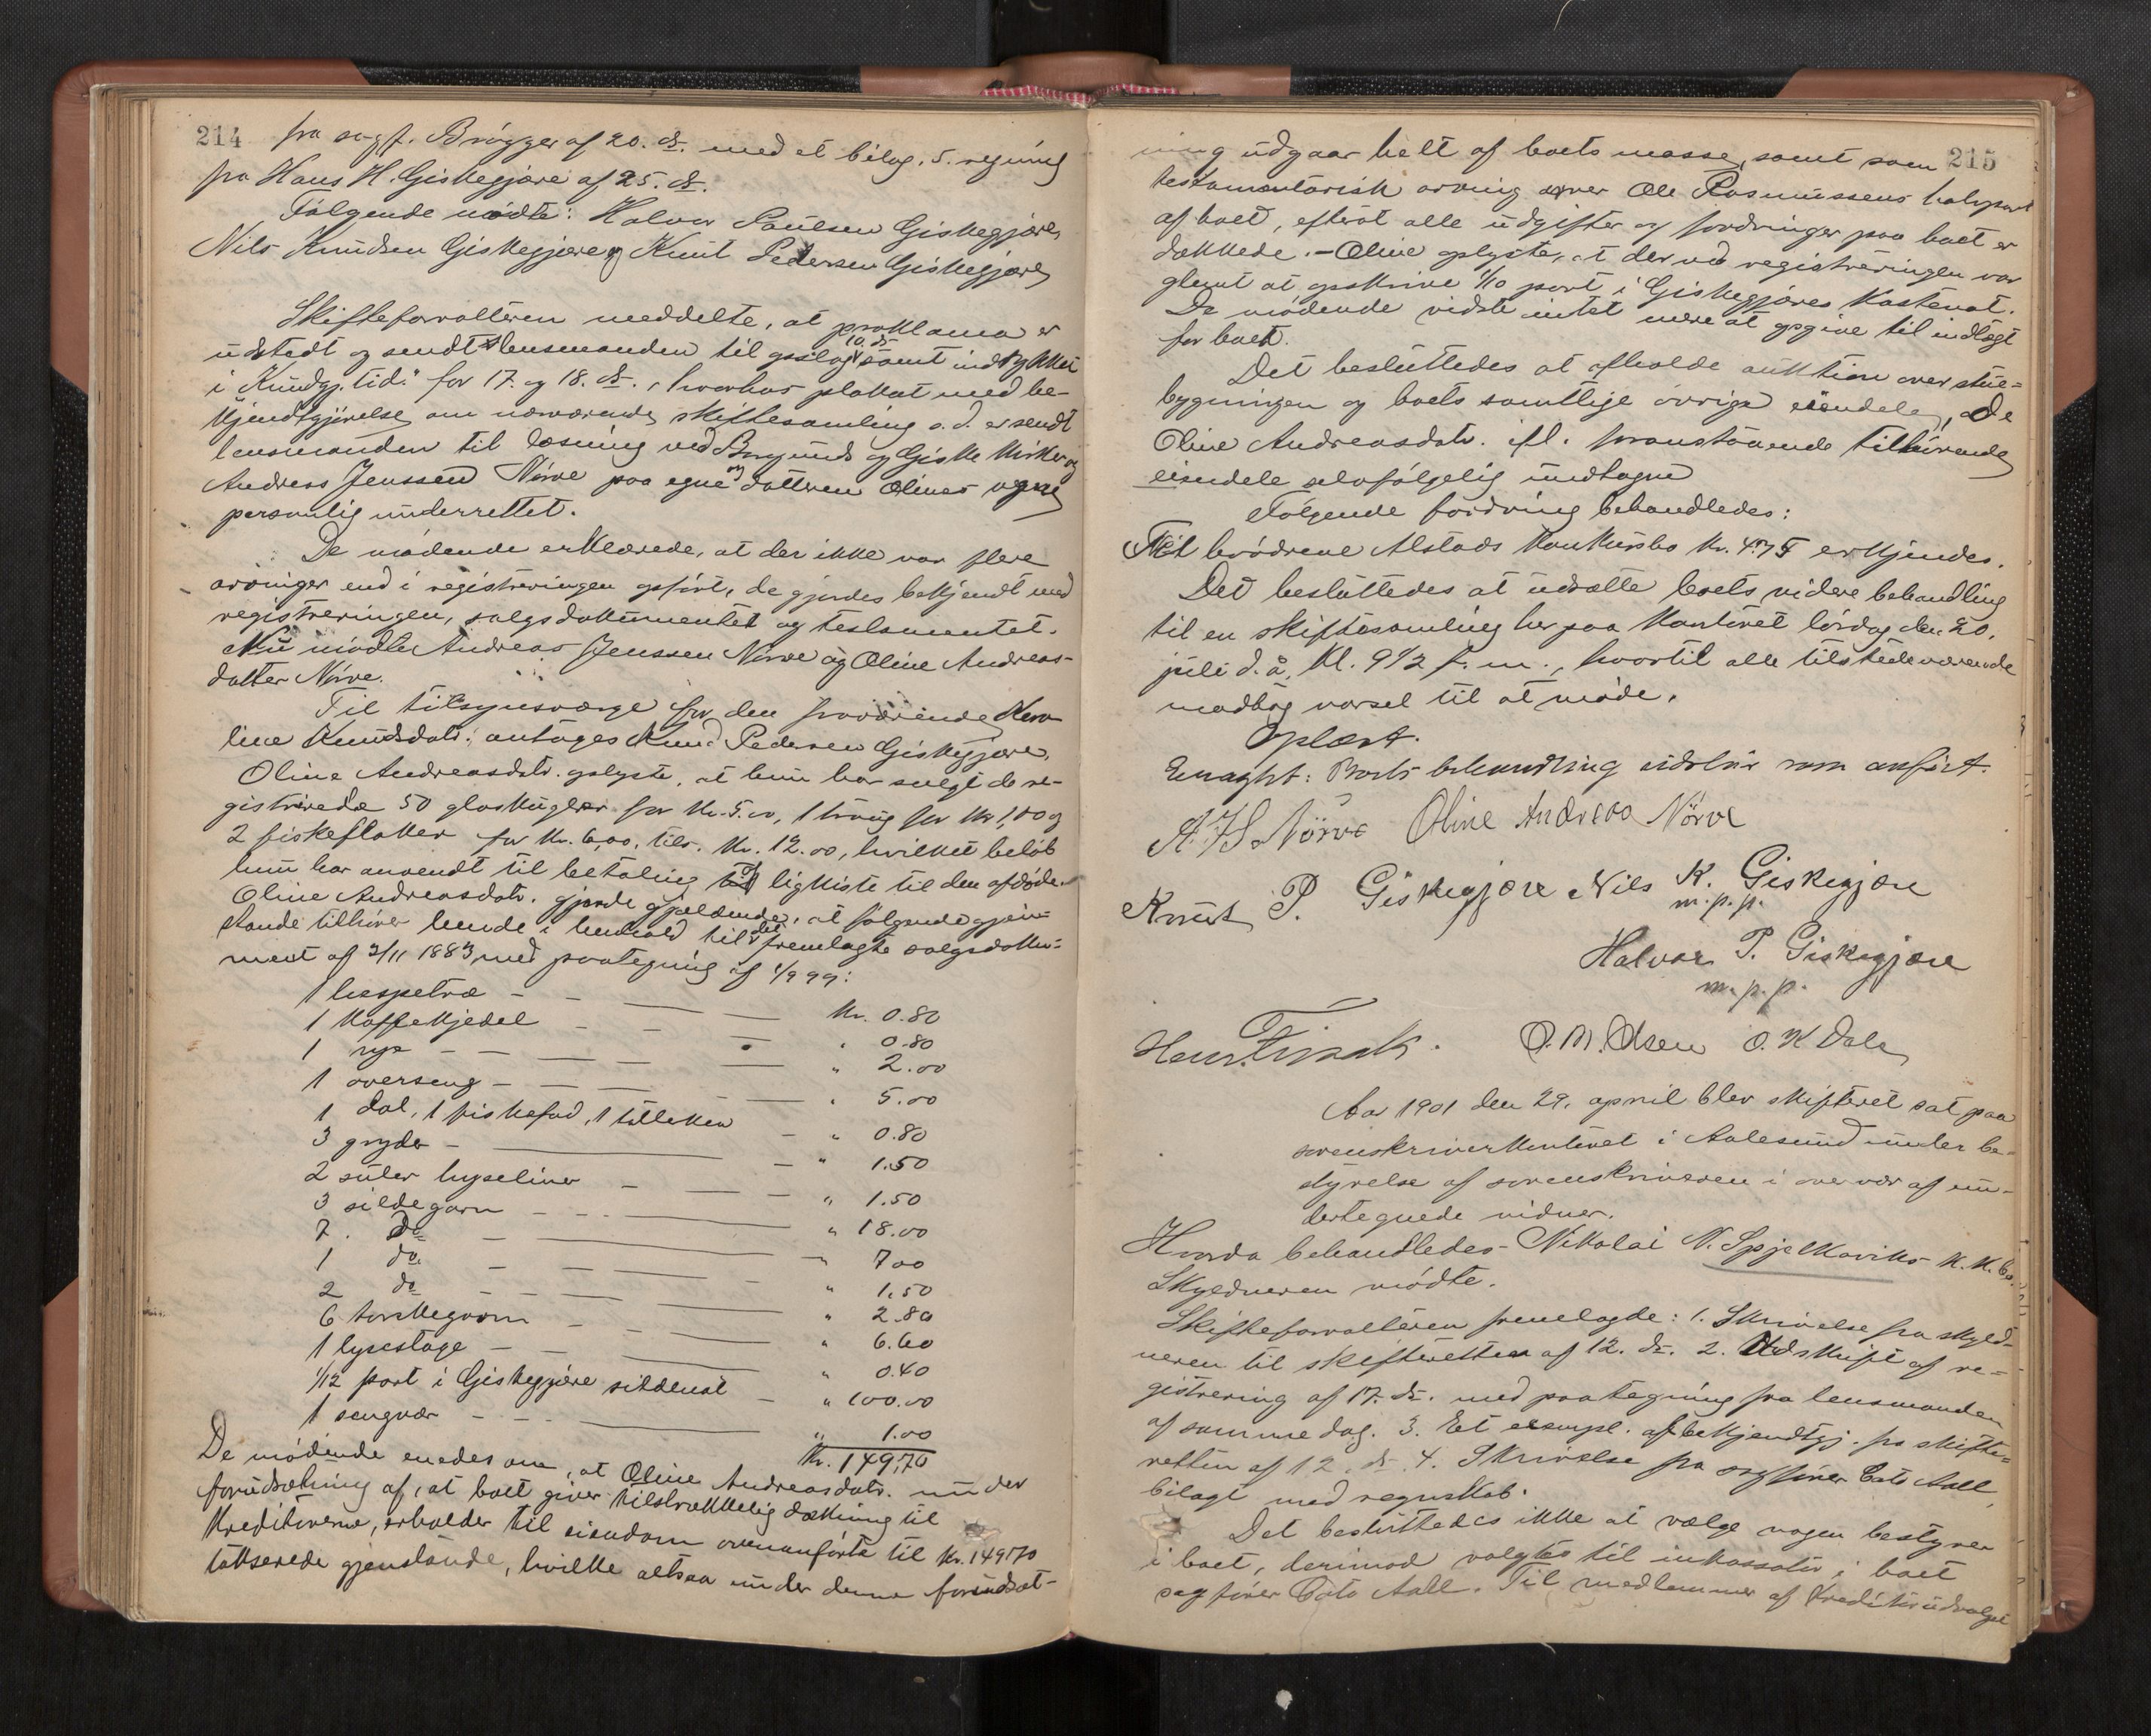 214
fra sagf. Brøgger af 20. ds. med et bilag, 5. regning
fra Hans H. Giskegjære af 25. ds.
Følgende mødte: Halvor Paulsen Giskegjære,
Nils Knudsen Giskegjære og Knut Pedersen Giskegjære
Skifteforvalteren meddelte, at proklama er
udstedt og sendt lensmanden til opslag 10. ds. samt indrykket
i "Kundgj. tid." for 17. og 18. ds., hvorhos plakat med be-
kjendtgjørelse om nærværende skiftesamling s. d. er sendt
lensmanden til læsning ved Borgunds og Giske kirker og
Andreas Jenssen Nørve paa egne og datteren Olines vegne
personlig underrettet.
De mødende erklærede, at der ikke var flere
arvinger end i registreringen opført, de gjordes bekjendt med
registreringen, salgsdokumentet og testamentet.
Nu mødte Andreas Jenssen Nørve og Oline Andreas-
datter Nørve.
Til tilsynsværge for den fraværende Karo-
line Knudsdatr. antages Knud Pedersen Giskegjære.
Oline Andreasdatr. oplyste, at hun har solgt de re-
gistrerede 50 glaskugler for Kr. 5.00, 1 traug for Kr 1,00 og
2 fiskeflaker for Kr. 6,00, tils. Kr. 12.00, hvilket beløb
hun har anvendt til betaling af ligkiste til den afdøde.
Oline Andreasdatr. gjorde gjældende, at følgende gjen-
stande tilhører hende i henhold til det fremlagte salgsdoku-
ment af 3/11 1883 med paategning af 1/9 99:
1 hespetræ Kr. 0.80
1 kaffekjedel " 0.80
1 rye " 2.00
1 overseng " 5.00
1 dal, 1 fiskefad, 1 tølleken " 0.80
3 gryder " 1.50
2 suler hyseliner " 1.50
3 sildegarn " 18.00
7. do " 7 00
1 do. " 1.50
2 do " 2.80
6 torskegarn " 6.60
1 lysestage " 0.40
1/12 part i Giskegjære sildenot " 100.00
1 sengvær " 1.00
Kr. 149,70
De mødende enedes om, at Oline Andreasdatr. under
forudsætning af, at boet giver tilstrækkelig dækning til
Kreditorerne, erholder til eiendom ovenanførte til Kr. 149.70
takserede gjenstande, hvilke altsaa under denne forudsæt-
215
ning udgaar helt af boets masse, samt som
testamentarisk arving arver Ole Rasmussens halvpart
af boet, efterat alle udgifter og fordringer paa boet er
dækkede. - Oline oplyste, at der ved registreringen var
glemt at opskrive 1/10 part i Giskegjæres Kastenot.
De mødende vidste intet mere at opgive til indtægt
for boet.
Det besluttedes at afholde auktion over stue-
bygningen og boets samtlige øvrige eiendele, de
Oline Andreasdatr. ifl. foranstaaende tilhørende
eiendele selvfølgelig undtagne
Følgende fordring behandledes:
Til brødrene Alstads Konkursbo Kr. 4.75 erkjendes.
Det besluttedes at udsætte boets videre behandling
til en skiftesamling her paa Kontoret lørdag den 20.
juli d. å. Kl. 9 1/2 f. m., hvortil alle tilstedeværende
modtog varsel til at møde.
Oplæst.
Eragtet: Boets behandling udstaar som anført.
A. J S. Nörve Oline Andreas Nörve
Knut P. Giskegjære Nils K. Giskegjære
m.p.p.
Halvor P. Giskegjære
m.p.p.
O. M. Olsen O. K Dale
Aar 1901 den 29. april blev skifteret sat paa
sorenskriverkontoret i Aalesund under be-
styrelse af sorenskriveren i overvær af un-
dertegnede vidner.
Hvorda behandledes Nikolai N. Spjelkaviks K. K. bo.
Skyldneren mødte.
Skifteforvalteren fremlagde: 1. Skrivelse fra skyld-
neren til skifteretten af 12. ds. 2. Udskrift af re-
gistrering af 17. ds. med paategning fra lensmanden
af samme dag. 3. Et exempl. af bekjendtgj. fra skifte-
retten af 12. ds. 4. Skrivelse fra sagfører Cato Aall,
bilagt med regnskab.
Det besluttedes ikke at vælge nogen bestyrer
i boet, derimod valgtes til inkassator i boet
sagfører Cato Aall. Til medlemmer af Kreditorudvalget